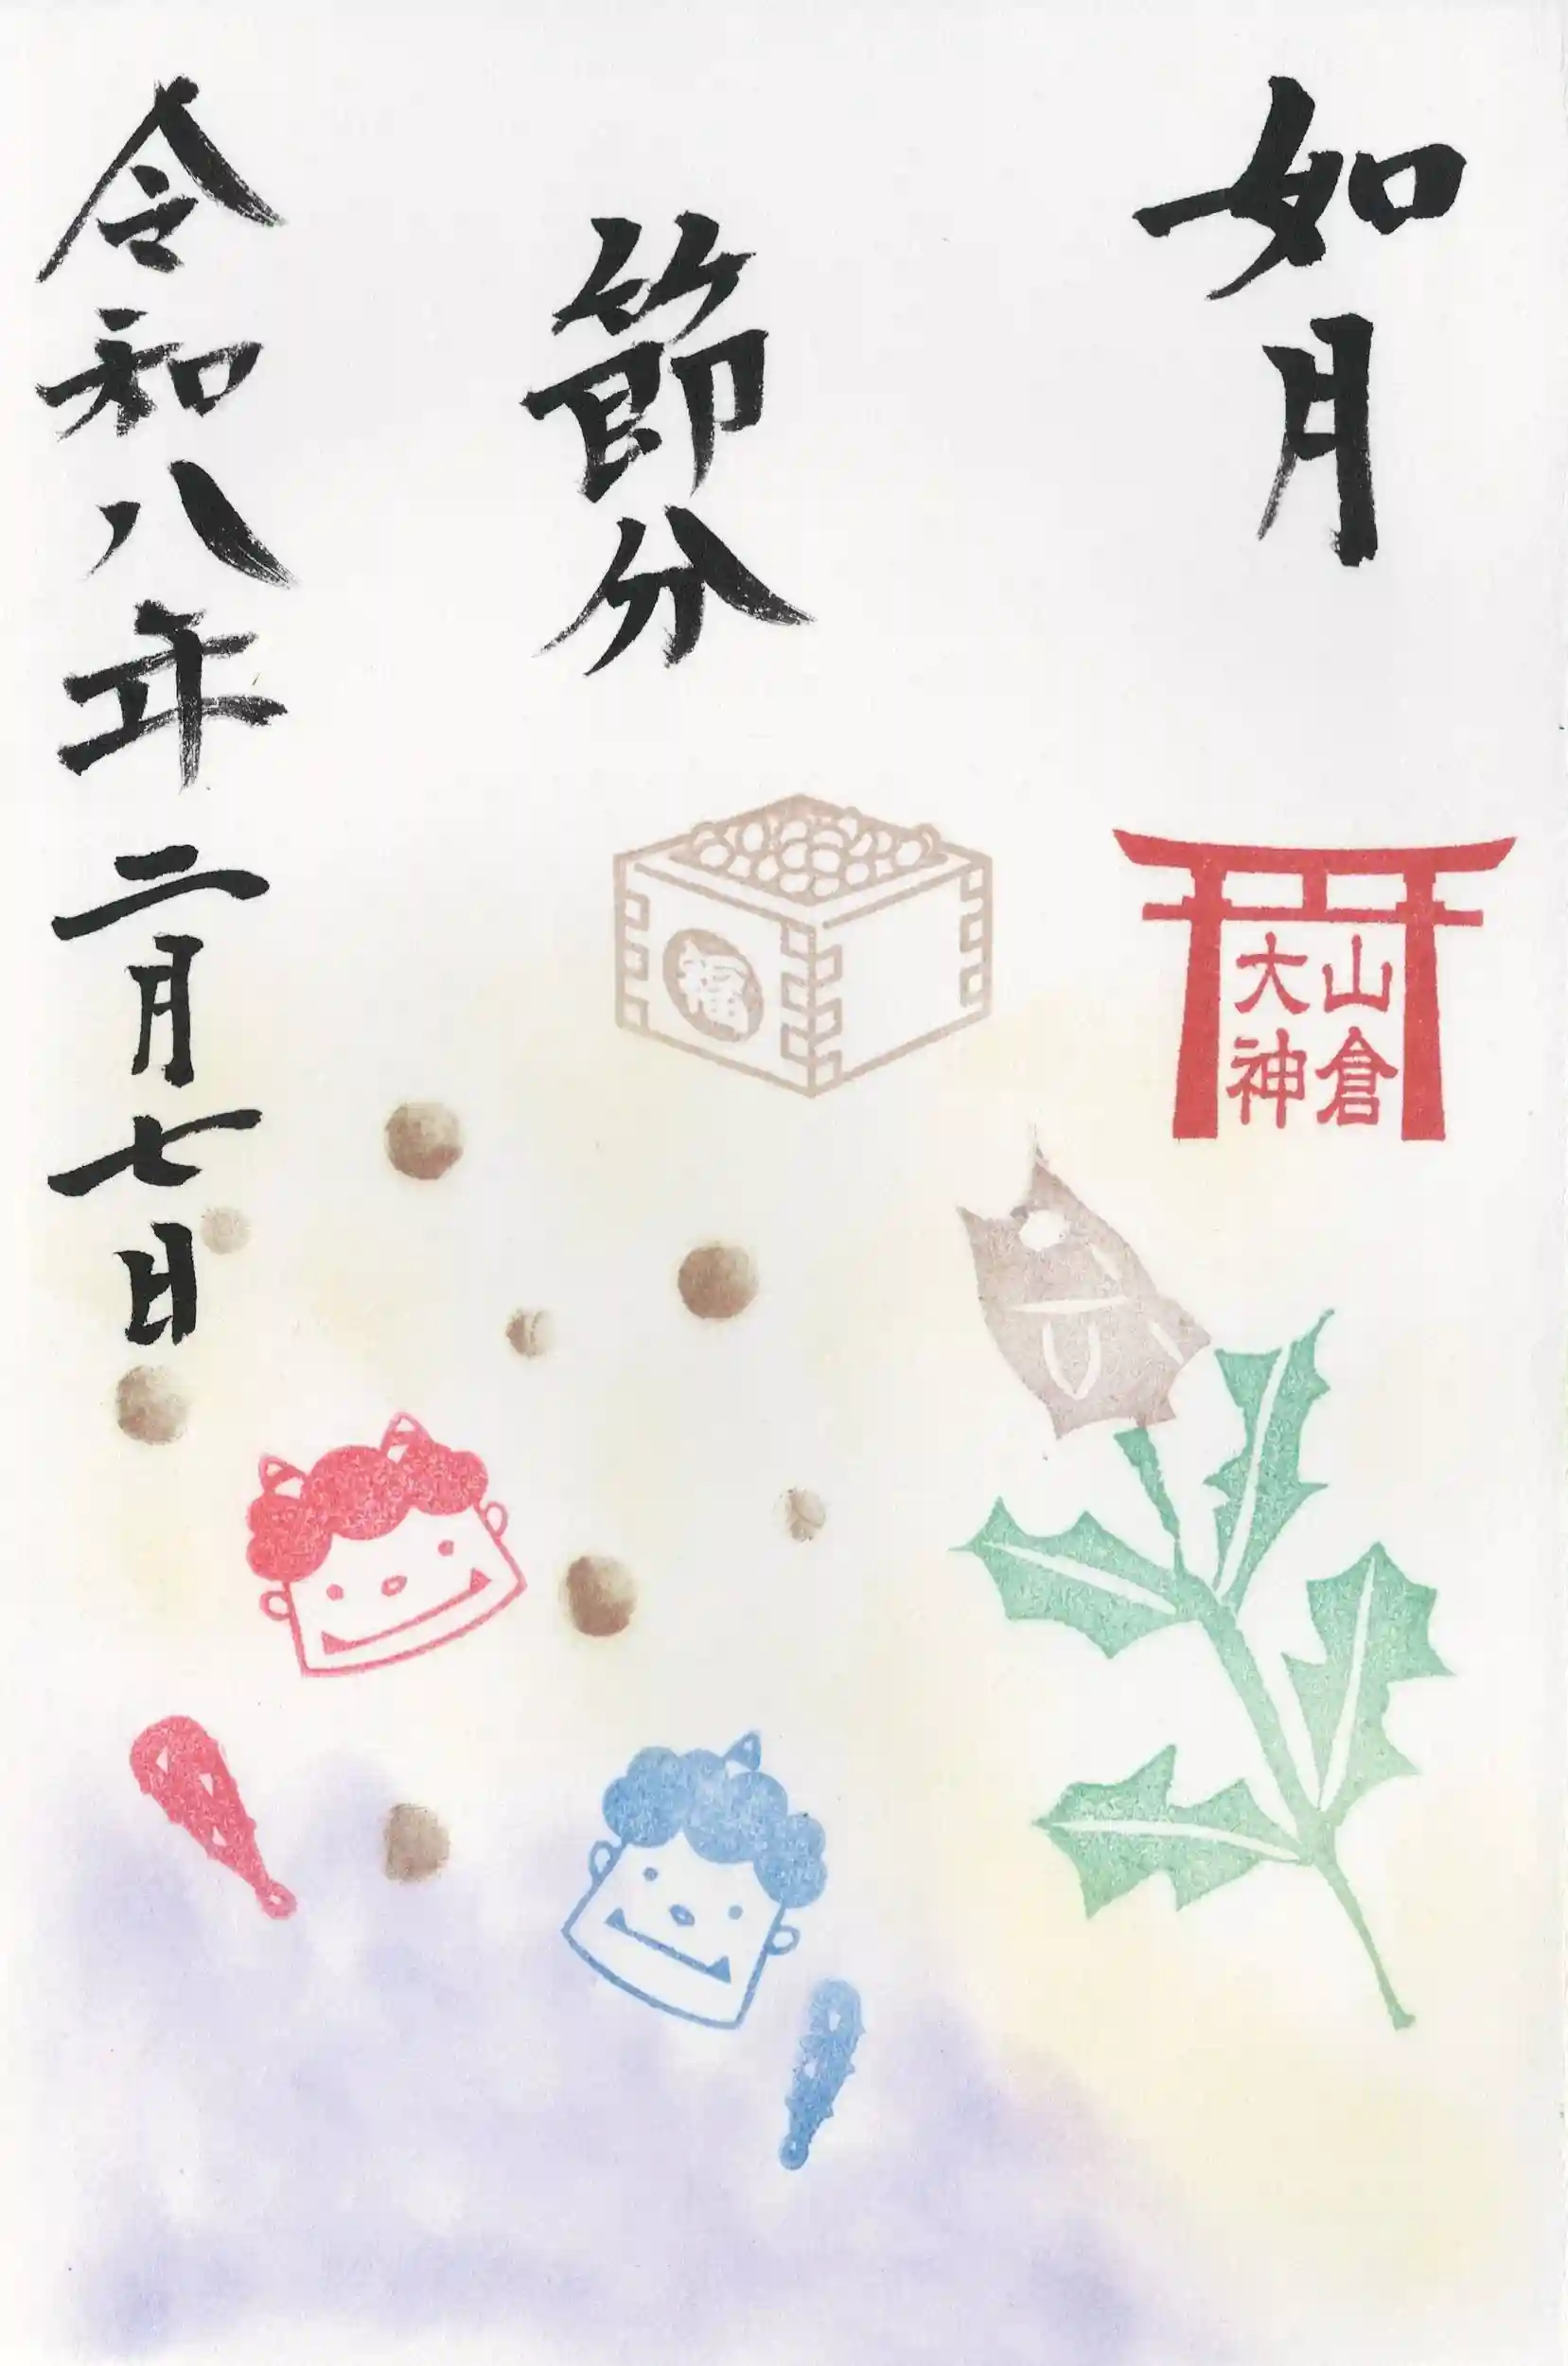 如月
山倉
大神
節分
福
令和八年二月七日